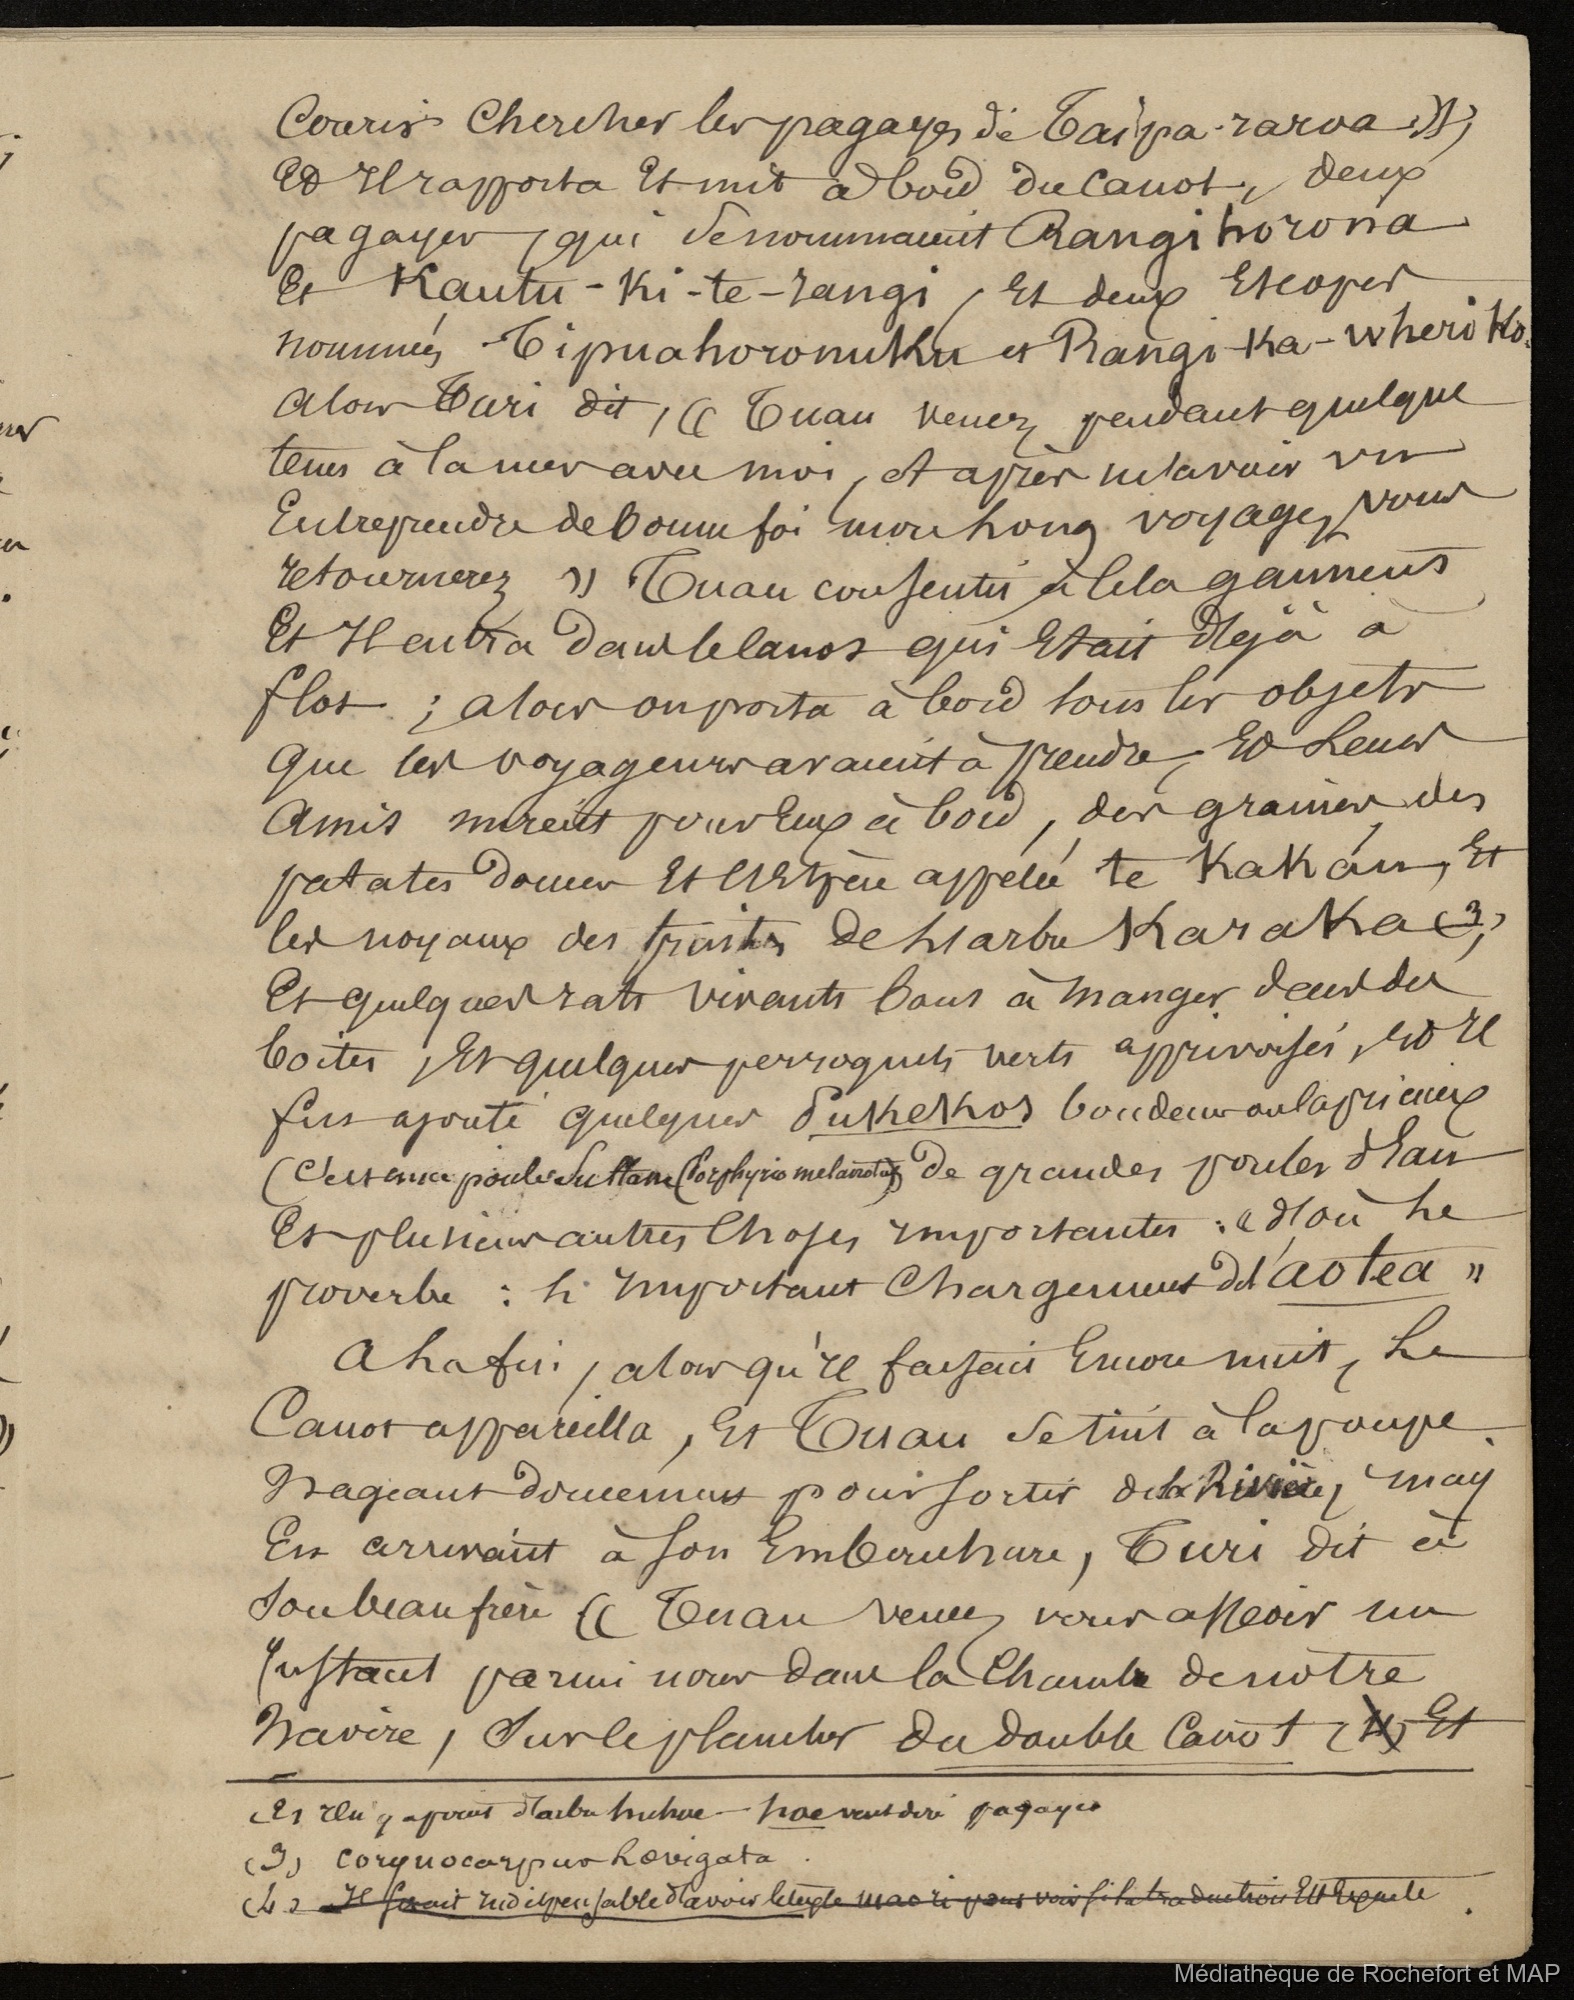 Courir chercher les pagayes de Taipa-raroa »,
Et Il rapporta Et mit à bord du Canot, deux
pagayes, qui se nommaient Rangihorona
Et Kautu-Ki-te-rangi, Et deux Escopes
nommées Tipuahoronuku et Rangi-Ka-wheriko.
alors Turi dit, « Tuau venez pendant quelque
tems à la mer avec moi, et après m'avoir vu
Entreprendre de bonne foi mon long voyage, vous
retournerez » Tuau consentit à cela gaiment
Et Il entra dans le canot qui Etait déjà à
flot ; alors on porta à bord tous les objets
que les voyageurs avaient à prendre, Et Leurs
Amis mirent pour Eux à bord, des graines, des
patates douces Et l'Espèce appelée te Kakau, Et
les noyaux des fruits de l'arbre Karaka (3),
Et quelques rats vivants bons à manger dans des
boites, Et quelques perroquets verts apprivoisés, Et Il
fut ajouté quelques Pukekos boudeurs ou capricieux
(C'est une poule Sultane (Porphyrio melanotus) de grandes poules d'Eau
Et plusieurs autres Choses importantes : « d'où le
proverbe : l'important Chargement d'aotea »
A la fin, alors qu'Il faisait Encore nuit, Le
Canot appareilla, Et Tuau se tint à la poupe
Nageant doucement pour sortir de la Rivière, mais
En arrivant à son Embouchure, Turi dit à
Son beau frère « Tuau venez vous asseoir un
Instant parmi nous dans la Chambre de notre
Navire, Sur le plancher du double Canot (4) Et
Il n'y a point d'arbre huhoe - hoe veut dire pagayes
(3) corynocarpus Lœvigata.
(4) Il serait indispensable d'avoir le texte maori pour voir si la traduction Est Exacte.
Médiathèque de Rochefort et MAP